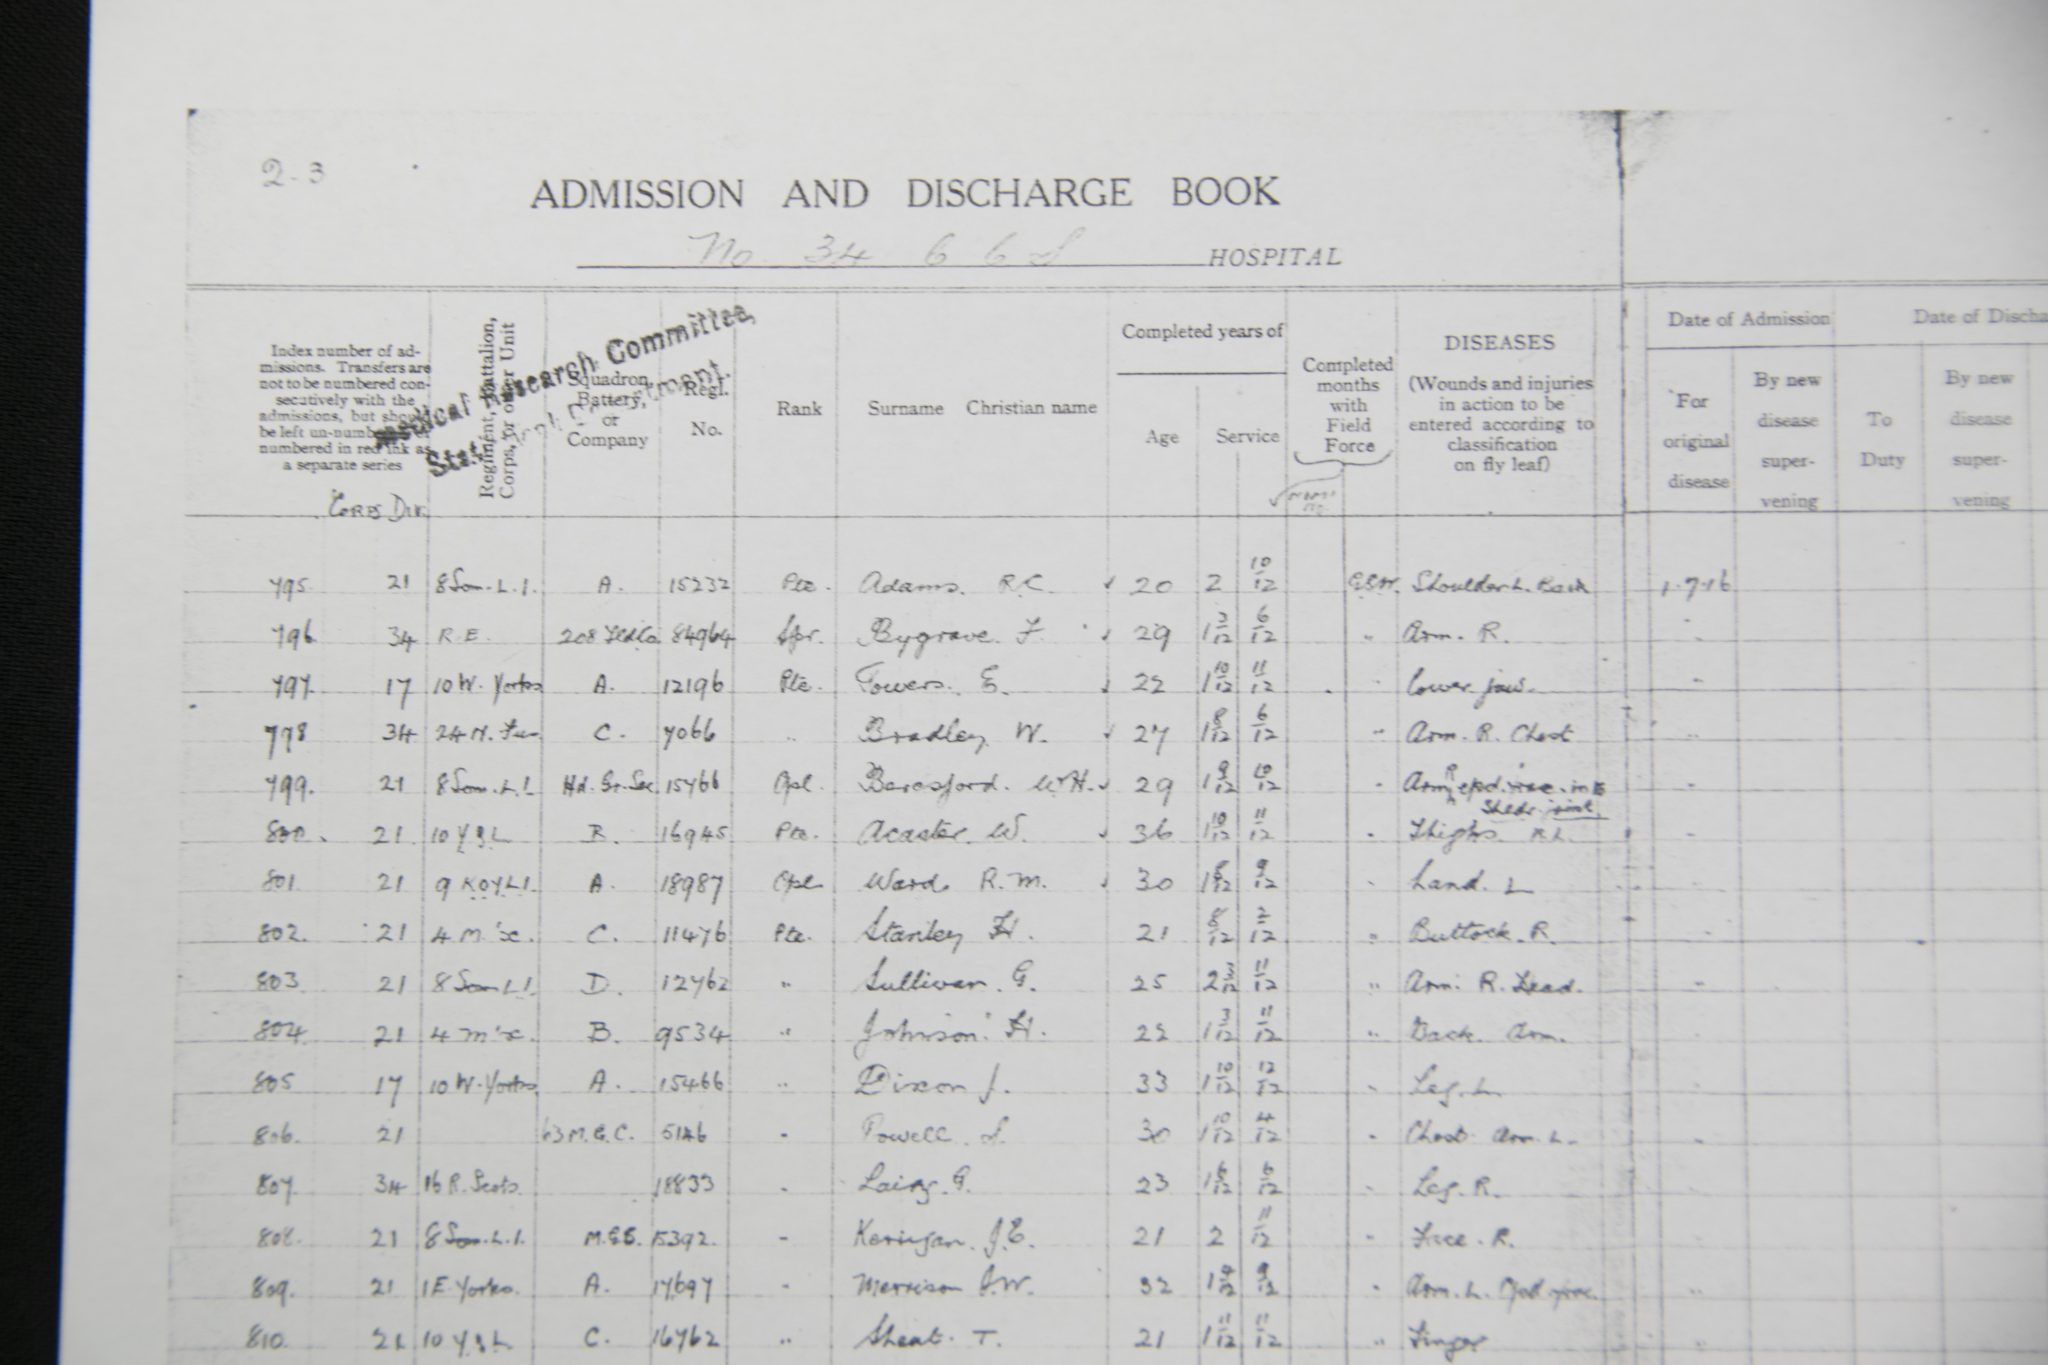 2-3
ADMISSION AND DISCHARGE BOOK
No 34 HOSPITAL
Index number of ad-
missions. Transfers are
not to be numbered con-
secutively with the
admissions, but
be left
numbered in red ink as
a separate series
Corps Div.
Regiment, Battalion,
Corps, or other Unit
Medical Research Committee,
Squadron,
Battery,
or
Company
Regl.
No.
Rank
Surname Christian name
Completed years of
Age Service
Completed
months
with
Field
Force
DISEASES
(Wounds and injuries
in action to be
entered according to
classification
on fly leaf)
Date of Admission
For
original
disease
By new
disease
super-
vening
Date of Discha
To
Duty
By new
disease
super-
vening
795. 21 8 Som. L.I. A. 15232 Pte. Adams. R.C. 20 2 10/12 G.S.W. Shoulder L. Back 1.7.16
796 34 R.E. 208 Fld Co 84964 Spr. Bygrave. F. 29 1 3/12 6/12 " Arm. R. "
797. 17 10 W. Yorks A. 12196 Pte. Towers. E. 22 1 10/12 11/12 " Lower jaw. "
798 34 24 N. Fus C. 7066 " Bradley. W. 27 1 8/12 6/12 " Arm. R. Chest "
799. 21 8 Som. L.I. 15766 Cpl. Beresford. W.H. 29 1 9/12 10/12 " Arm R "
Shldr. joint
800. 21 10 Y&L B. 16945 Pte. Acaster. W. 36 1 10/12 11/12 " Thighs R.L. "
801. 21 9 KOYLI. A. 18987 Cpl. Ward. R.M. 30 9/12 " Hand. L
802. 21 4 M'x. C. 11476 Pte. Stanley H. 21 8/12 2/12 " Buttock. R.
803 21 8 Som L.I. D. 12762 " Sullivan. G. 25 11/12 " Arm. R. Head. "
804. 21 4 M'x. B. 9534 " Johnson. H. 22 1 3/12 11/12 " Back. Arm.
805 17 10 W. Yorks. A. 15466 " Dixon J. 33 1 10/12 12/12 " Leg. L.
806. 21 63 M.G.C. 5146 " Powell. 30 1 10/12 4/12 " Chest Arm. L. "
807. 34 16 R. Scots. 18833 " Laing. G. 23 1 6/12 6/12 " Leg. R.
808. 21 8 Som. L.I. 15392. " Kerrigan. J.E. 21 2 11/12 " Face. R.
809. 21 1 E. Yorks. A. 17697 " Morrison J.W. 32 9/12 " Arm. L. "
810. 21 10 Y&L C. 16762 " Sheat. T. 21 1 11/12 11/12 " Finger